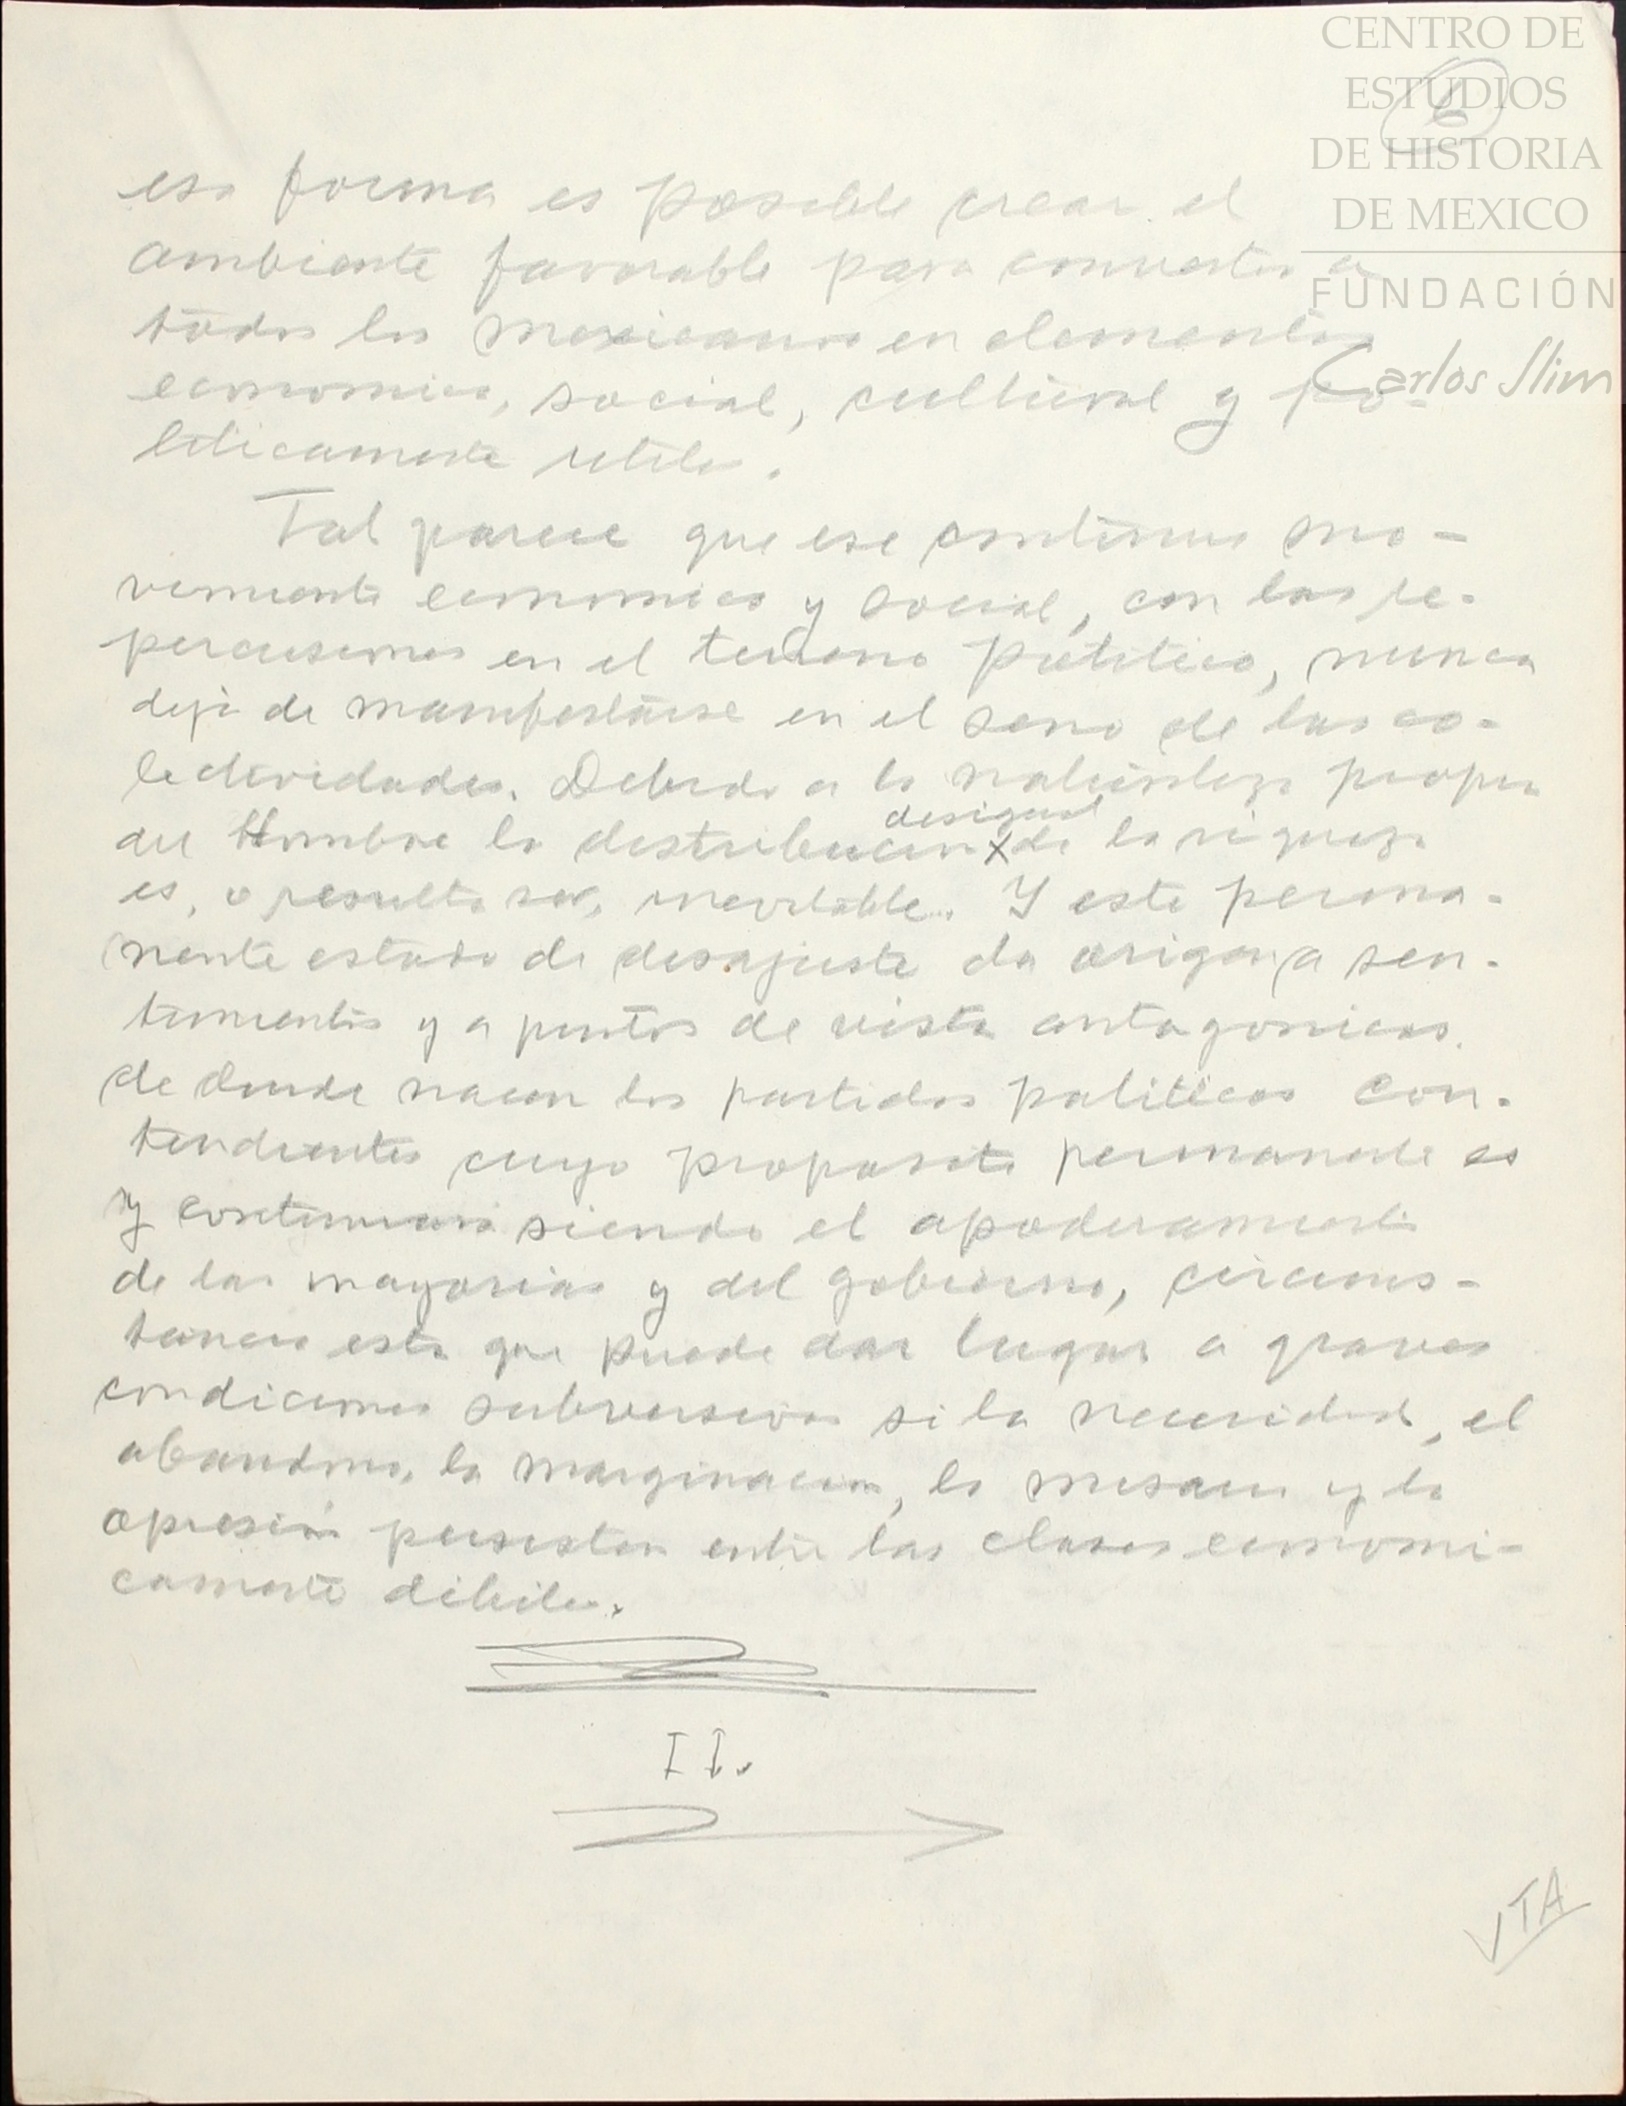 CENTRO DE
ESTUDIOS
DE HISTORIA
DE MEXICO
FUNDACIÓN
Carlos Slim
6
esa forma es posible crear el
ambiente favorable para convertir a
todos los mexicanos en elementos
economica, social, cultural y po-
liticamente utiles.
Tal parece que ese continuo mo-
vimiento economico y social, con las re-
percusiones en el terreno politico, nunca
dejó de manifestarse en el seno de las co-
lectividades. Debido a la naturaleza propia
del Hombre la distribucion x de la riqueza
desigual
es, o resulta ser, inevitable. Y este perma-
nente estado de desajuste da origen a sen-
timientos y a puntos de vista antagonicos.
de donde nacen los partidos politicos con-
tendientes cuyo proposito permanente es
y continuará siendo el apoderamiento
de las mayorias y del gobierno, circuns-
tancia esta que puede dar lugar a graves
condiciones subversivas si la necesidad, el
abandono, la marginacion, la miseria y la
opresión persisten entre las clases economi-
camente débiles.
II.
VTA